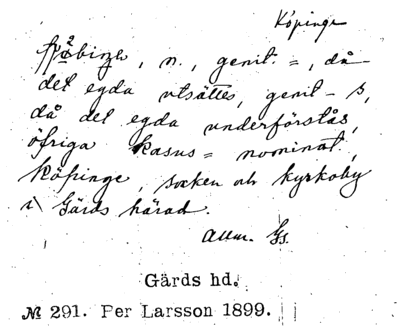 Köpinge
n., genit. =, då
det egda utsättes, genit - s,
då det egda underförstås,
öfriga kasus = nominat,
Köpinge, socken och kyrkoby
i Gärds härad.
Allm. Gs.
Gärds hd.
№ 291. Per Larsson 1899.